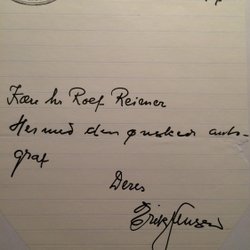 Kære hr Roef Reimer
Hermed den ønskede auto-
graf
Deres
Erik Jensen